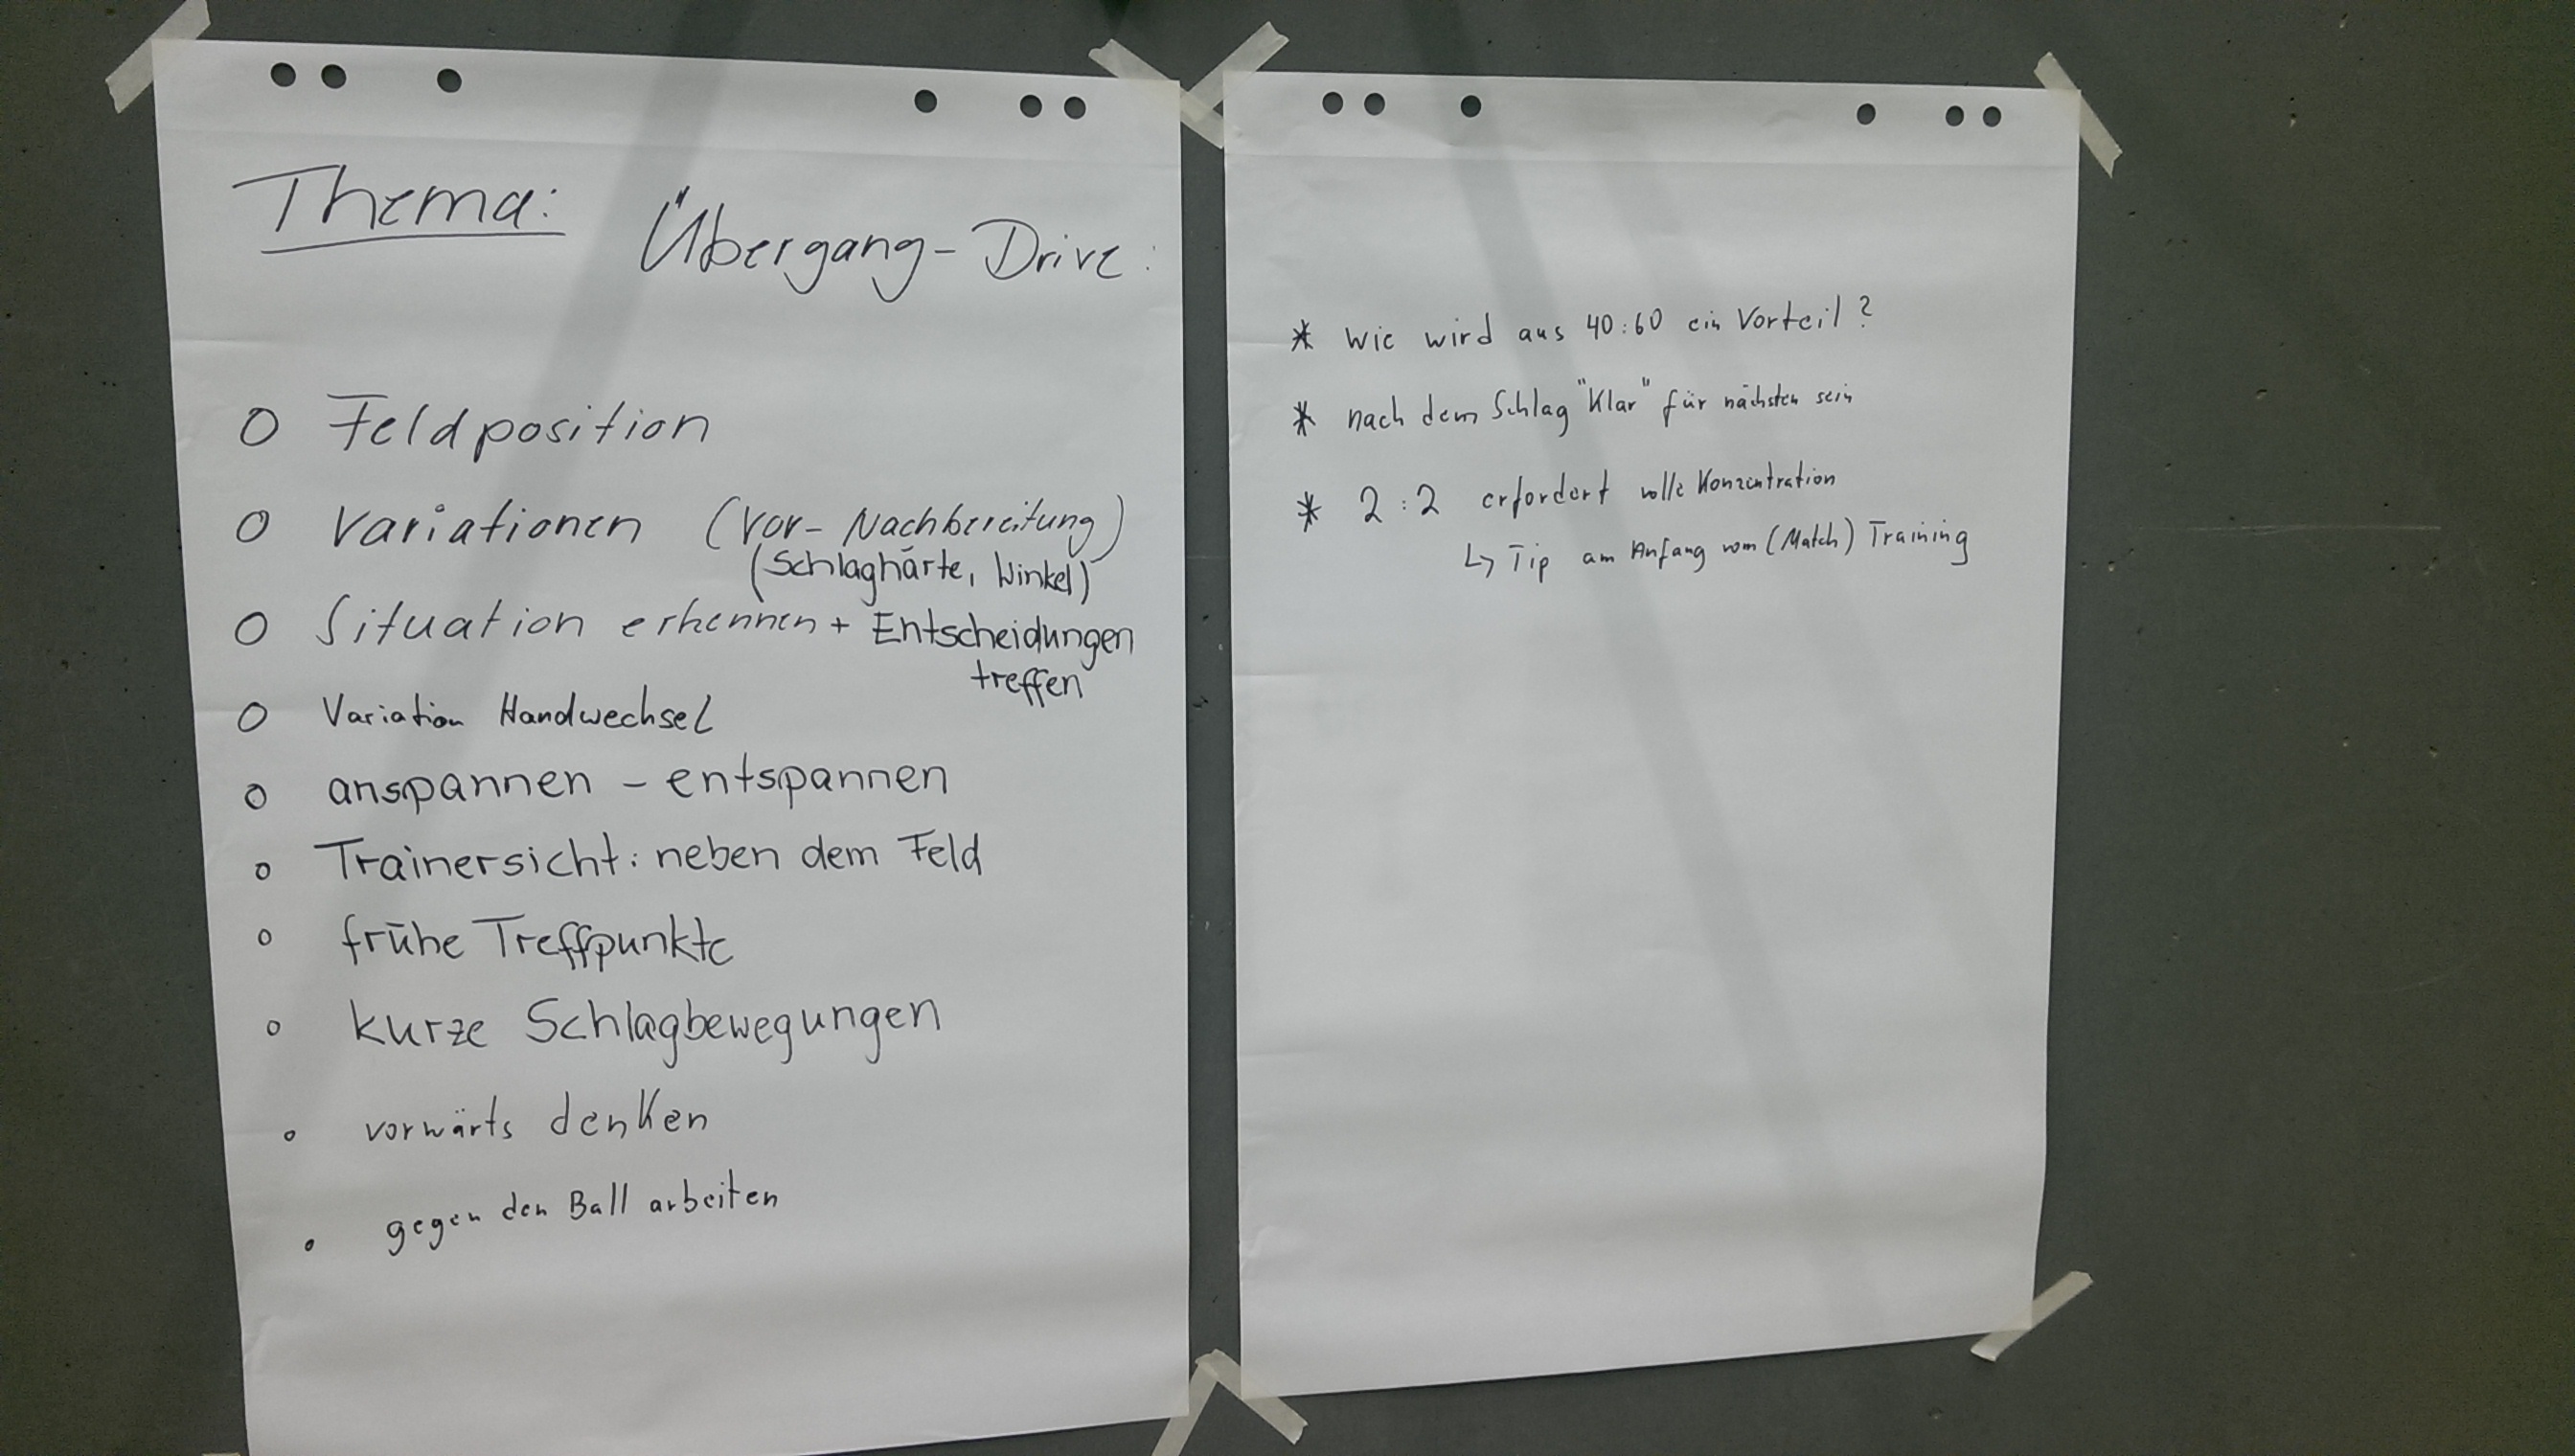 Thema: Übergang-Drive:
o Feldposition
o Variationen (Vor- Nachbereitung)
(Schlaghärte, Winkel)
o Situation erkennen + Entscheidungen
treffen
o Variation Handwechsel
o anspannen – entspannen
o Trainersicht: neben dem Feld
o frühe Treffpunkte
o kurze Schlagbewegungen
o vorwärts denken
o gegen den Ball arbeiten
* Wie wird aus 40:60 ein Vorteil?
* nach dem Schlag "Klar" für nächsten sein
* 2:2 erfordert volle Konzentration
↳ Tip am Anfang vom (Match) Training